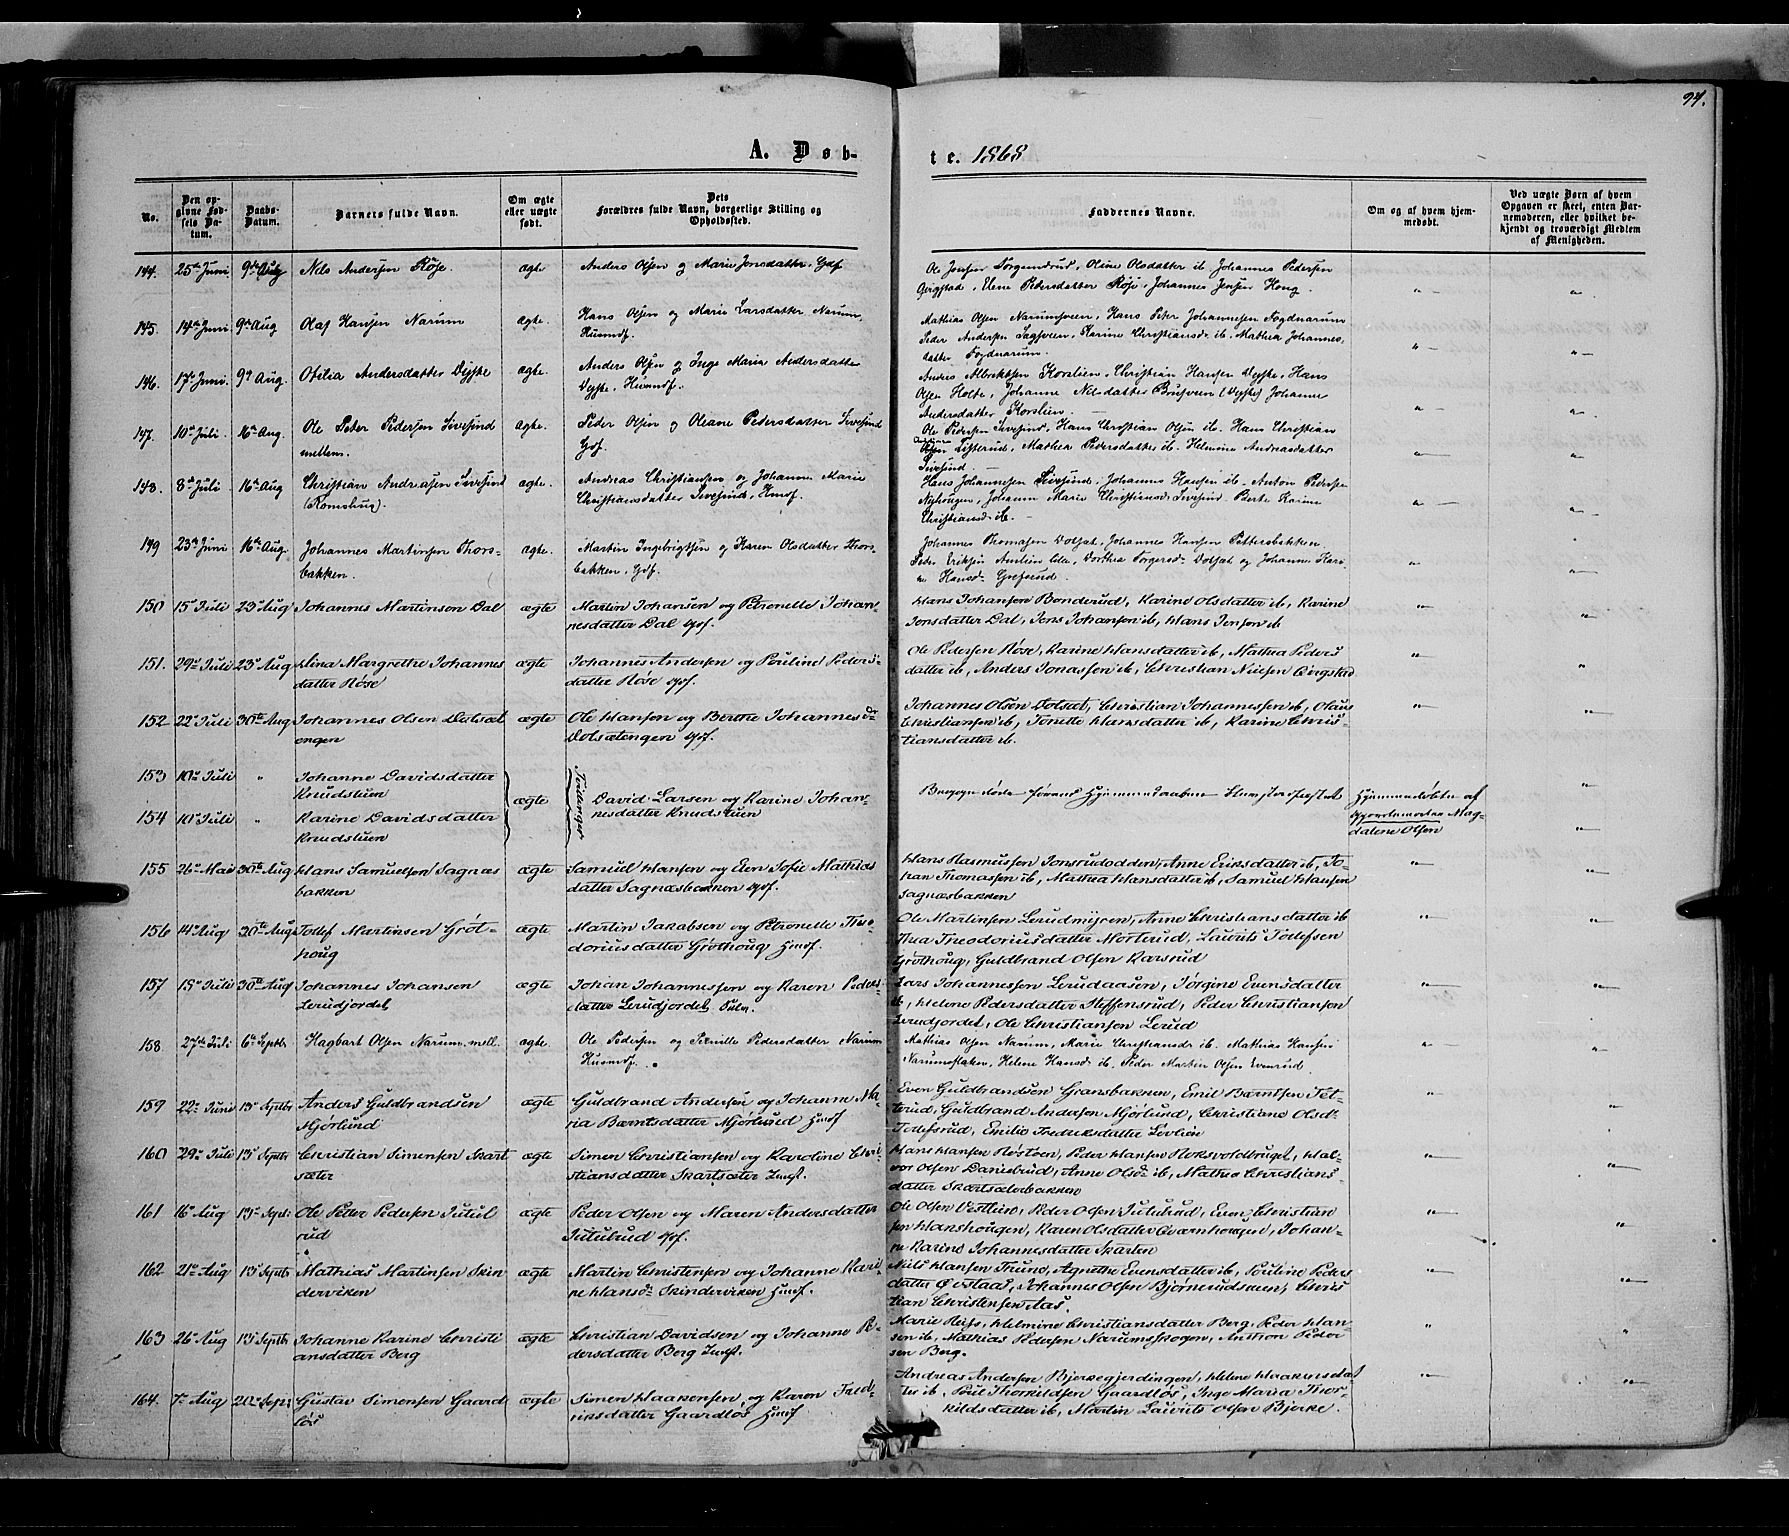 94.
A. Døb-
te. 1868
No.
Den opgivne Fødsels Datum.
Daabs-Datum.
Barnets fulde Navn.
Om ægte eller uægte født.
Dets Forældres fulde Navn, borgerlige Stilling og Opholdssted.
Faddernes Navne.
Om og af hvem hjemmedøbt.
Ved uægte Børn af hvem Opgaven er skeet, enten Barnemoderen, eller hvilket bekjendt og troværdigt Medlem af Menigheden.
144. 25de Juni 9de Aug Nils Andersen Røse. ægte Anders Olsen og Marie Jonsdatter, Gdf
Ole Jonsen Oline Olsdatter ib Johannes Pedersen
Girgstad, Elene Pedersdatter Røse, Johannes Jensen Houg.
145. 14de Juni 9de Aug Olaf Hansen Narum ægte. Hans Olsen og Marie Larsdatter Narum,
Husmdf.
Mathias Olsen Narumsveen, Hans Peter Johannesen Fogdnarum
Peder Andersen Sagsveen, Karine Christiansd. ib. Mathea Johannes,
datter Fogdnarum.
146. 17de Juni. 9de Aug. Otilia Andersdatter Dyste ægte. Anders Olsen og Inge Maria Andersdatter
Dyste, Husmdf.
Andreas Albrektsen Korslien, Christian Hansen Dyste, Hans
Olsen Holte, Johanne Nilsdatter Brusveen (Dyste) Johanne
Andersdatter Korslien.
147. 10de Juli. 16de Aug. Ole Peter Pedersen Sivesind
mellem. ægte. Peder Olsen og Oleane Pedersdatter Sivesind
Gdf.
Ole Pedersen Sivesind, Hans Christian Olsen ib. Hans Christian
Olsen Mathea Pedersdatter ib. Helmine Andreasdatter
Sivesind.
148. 8de Juli 16de Aug Christian Andreasen Sivesind
ægte. Andreas Christiansen og Johanne Marie
Christiansdatter Sivesind, Hmdf.
Hans Johannesen Sivesind, Johannes Hansen ib. Anton Pedersen
Nyhougen, Johanne Marie Christiansd. Sivesind Berte Karine
Christiansd. ib.
149 23de Juni 16de Aug. Johannes Martinsen Thors-
bakken. ægte. Martin Ingebrigtsen og Karen Olsdatter Thors-
bakken, Gdf.
Johannes Thomasen Dolsæt, Johannes Hansen Pettersbakken
Peder Eriksen Amlien Dorthea Torgersd. Dolsæt og Johanne Kari-
ne Hansd. Grefsrud.
150 15de Juli 23de Aug Johannes Martinson Dal ægte Martin Johansen og Petronelle Johan-
nesdatter Dal Gdf.
Hans Johansen Bonderud, Karine Olsdatter ib, Karine
Jonsdatter Dal, Jens Johansen ib, Hans Jensen ib
151. 29de Juli 23de Aug Lina Margrethe Johannes
datter Røse ægte Johannes Andersen og Pauline Peders-
datter Røse Gdf.
Ole Pedersen Røse, Karine Hansdatter ib, Mathea Peders
datter ib, Anders Jonassen ib, Christian Nielsen Girgstad
152 22de Juli 30te Aug Johannes Olsen Dolsæt
engen ægte Ole Hansen og Berthe Johannesdr
Dolsætengen Gdf.
Johannes Olsen Dolsæt, Christian Johannessen ib, Olaus
Christiansen ib, Tonette Hansdatter ib, Karine Chris-
tiansdatter ib.
153 10de Juli " Johanne Davidsdatter
Knudstuen
154 10de Juli " Karine Davidsdatter
Knudstuen
ægte Tvillinger David Larsen og Karine Johan-
nesdatter Knudstuen
Begge døde førend Hjemmedaabens Stadfæstelse
Hjemmedøbte af
Gjordemoder Mag-
dalene Olsen
155 26de Mai 30te Aug Hans Samuelsen Sagnæs
bakken ægte Samuel Hansen og Elen Sofie Mathias
datter Sagnæsbakken Gdf.
Hans Rasmussen Jonsrudodden, Anne Eriksdatter ib, Jo-
han Thomassen ib, Mathea Hansdatter ib, Samuel Hansen
Sagnæsbakken
156 14de Aug 30te Aug Tollef Martinsen Grøt-
houg ægte Martin Jakobsen og Petronelle Theo-
doriusdatter Grøthoug Hmdf.
Ole Martinsen Lerudmyren, Anne Christiansdatter ib
Thea Theodoriusdatter Morterud, Laurits Tollefsen
Grøthoug, Guldbrand Olsen Karsrud
157 15de Juli 30te Aug Johannes Johansen
Lerudjordet ægte Johan Johannessen og Karen Peders-
datter Lerudjordet
Lars Johannessen Lerudaasen, Jørgine Evensdatter
ib, Helene Pedersdatter Steffensrud, Peder Christiansen
Lerudjordet, Ole Christiansen Lerud
158. 27de Juli 6te Septbr Hagbart Olsen Narum mell. ægte Ole Pedersen og Pernille Pedersdatter Narum
Husmdf.
Mathias Olsen Narum, Marie Christiansdr ib. Mathias Hansen
Narumstaken, Helene Hansd. ib. Peder Martin Olsen Evenrud.
159 22de Juni 13de Septbr Anders Guldbrandsen
Mjørlund ægte Guldbrand Andersen og Johanne Ma-
ria Berntsdatter Mjørlund Hmdf
Even Guldbrandsen Gransbakken, Emil Berntsen Tet-
terud, Guldbrand Andersen Mjørlund, Christiane Olsd.
Tollefsrud, Emilie Fredriksdatter Løvlien
160 29de Juli 13de Septbr Christian Simensen Skart
sæter ægte Simen Christiansen og Karoline Chri-
stiansdatter Skartsæter
Hans Hansen Peder Hansen Hal-
vor Olsen Anne Olsd. ib, Mathea Christians
datter Skartsæterbakken
161 16de Aug 13de Septr Ole Petter Pedersen Tutul
rud ægte Peder Olsen og Maren Andersdatter
Tutulrud Gdf.
Ole Olsen Vestlien, Peder Olsen Tutulrud, Even Christian
sen Hanshougen, Karen Olsdatter Qværnhougen, Johan-
ne Karine Johannesdatter Skarten
162 21de Aug 13de Septbr Mathias Martinsen Skin
derviken ægte Martin Christensen og Johanne Kari-
ne Hansd. Skinderviken Hmdf.
Nils Hansen Agnethe Evensdatter ib, Pauline Peders
datter Øverstaas, Johannes Olsen Bjørnerudsveen, Chris
tian Christensen Aas.
163 26de Aug 13de Septbr Johanne Karine Christi
ansdatter Berg ægte Christian Davidsen og Johanne Pe-
dersdatter Berg
Marie Helmine Christiansdatter Berg, Peder Han-
sen ib, Mathias Pedersen Narumsskogen, Anthon Peder
sen Berg.
164. 7de Aug 20de Septr Gustav Simensen Gaard
løs ægte Simen Haakensen og Karen Fred-
riksdatter Gaardløs Hmdf
Andreas Andersen Bjerkegjerdingen, Helene Haakensdat
ter ib, Poul Thorkildsen Gaardløs, Inge Maria Thor-
kildsdatter ib, Martin Laurits Olsen Bjerke.